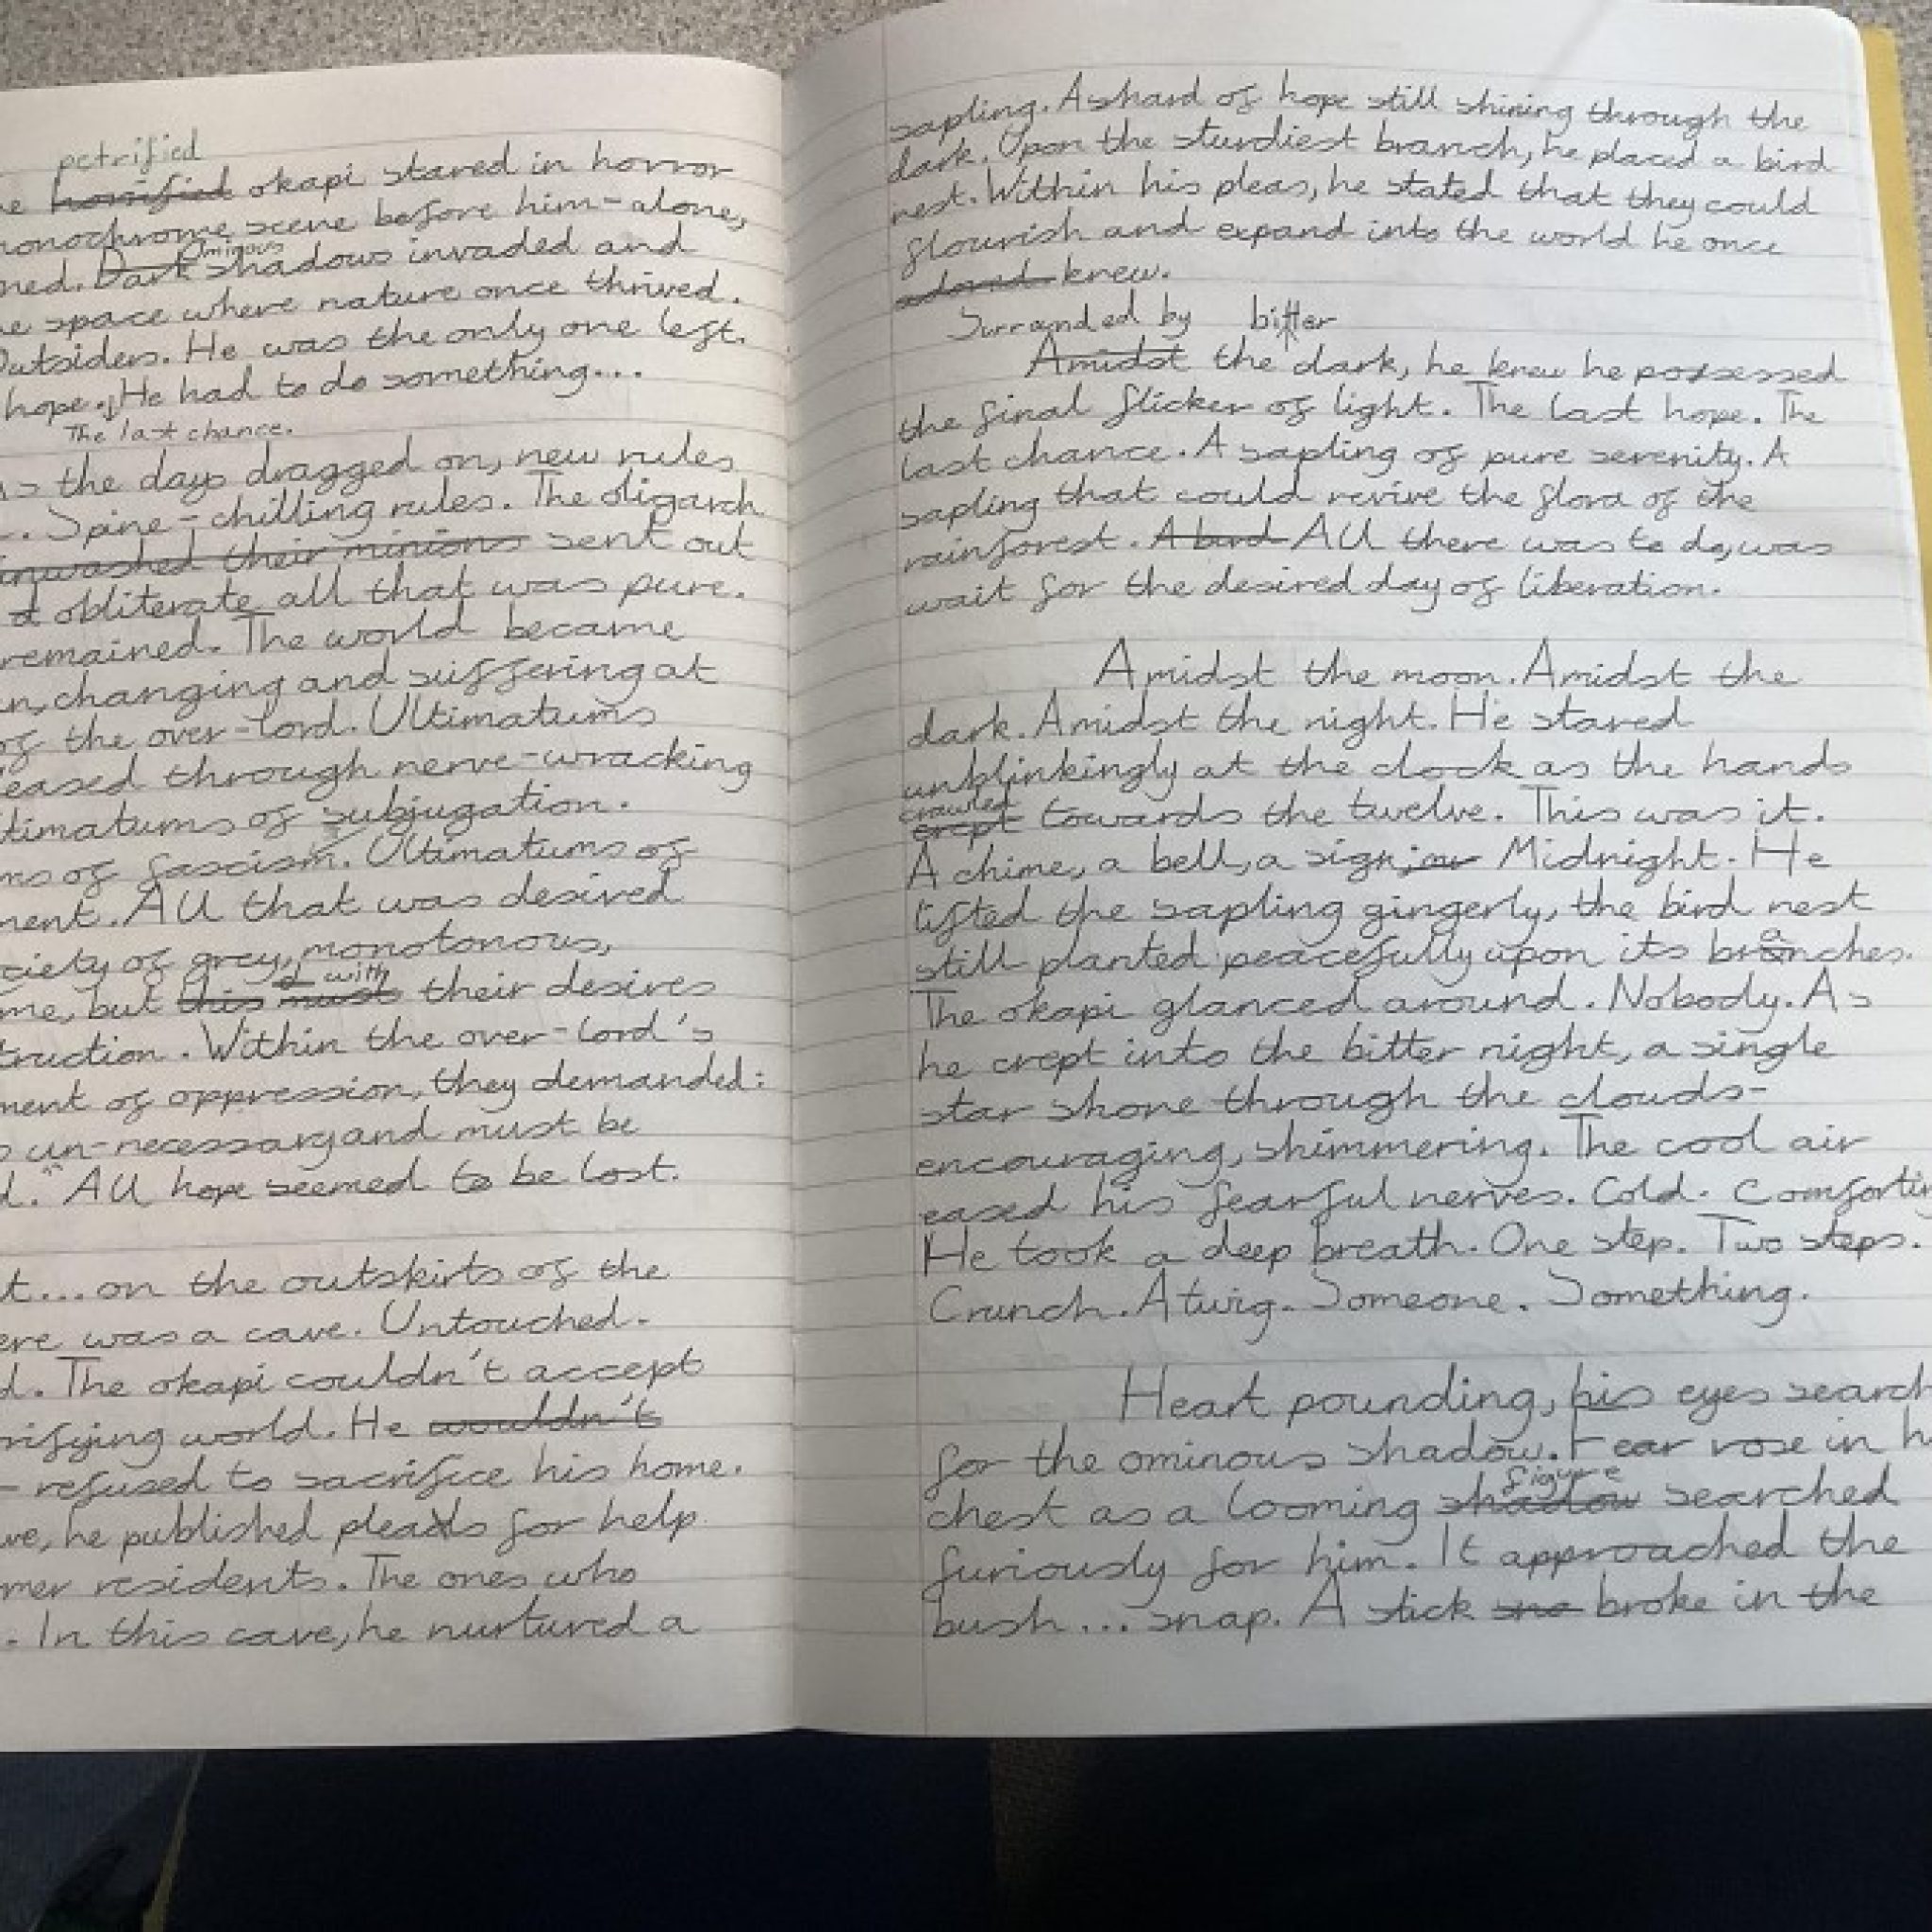 petrified
horrified okapi stared in horror
monochrome scene before him-alone,
Ominous
Dark shadows invaded and
space where nature once thrived.
Outsiders. He was the only one left.
hope. He had to do something...
The last chance.
As the days dragged on, new rules
Spine-chilling rules. The oligarch
their minions sent out
obliterate all that was pure.
remained. The world became
changing and suffering at
of the over-lord. Ultimatums
through nerve-wracking
of subjugation.
of fascism. Ultimatums of
All that was desired
of grey, monotonous,
& with
but this must their desires
Within the over-lord's
of oppression, they demanded:
un-necessary and must be
All hope seemed to be lost.
...on the outskirts of the
was a cave. Untouched.
The okapi couldn't accept
world. He wouldn't
- refused to sacrifice his home.
he published pleads for help
residents. The ones who
. In this cave, he nurtured a
sapling. A shard of hope still shining through the
dark. Upon the sturdiest branch, he placed a bird
nest. Within his pleas, he stated that they could
flourish and expand into the world he once
adored knew.
Surranded by bitter
Amidst the dark, he knew he possessed
the final flicker of light. The last hope. The
last chance. A sapling of pure serenity. A
sapling that could revive the flora of the
rainforest. A bird All there was to do, was
wait for the desired day of liberation.
Amidst the moon. Amidst the
dark. Amidst the night. He stared
unblinkingly at the clock as the hands
crawled
crept towards the twelve. This was it.
A chime, a bell, a sign; Midnight. He
lifted the sapling gingerly, the bird nest
still planted peacefully upon its branches.
The okapi glanced around. Nobody. As
he crept into the bitter night, a single
star shone through the clouds-
encouraging, shimmering. The cool air
eased his fearful nerves. Cold. Comfortin
He took a deep breath. One step. Two steps.
Crunch. A twig. Someone. Something.
Heart pounding, his eyes search
for the ominous shadow. Fear rose in h
figure
chest as a looming shadow searched
furiously for him. It approached the
bush... snap. A stick sna broke in the